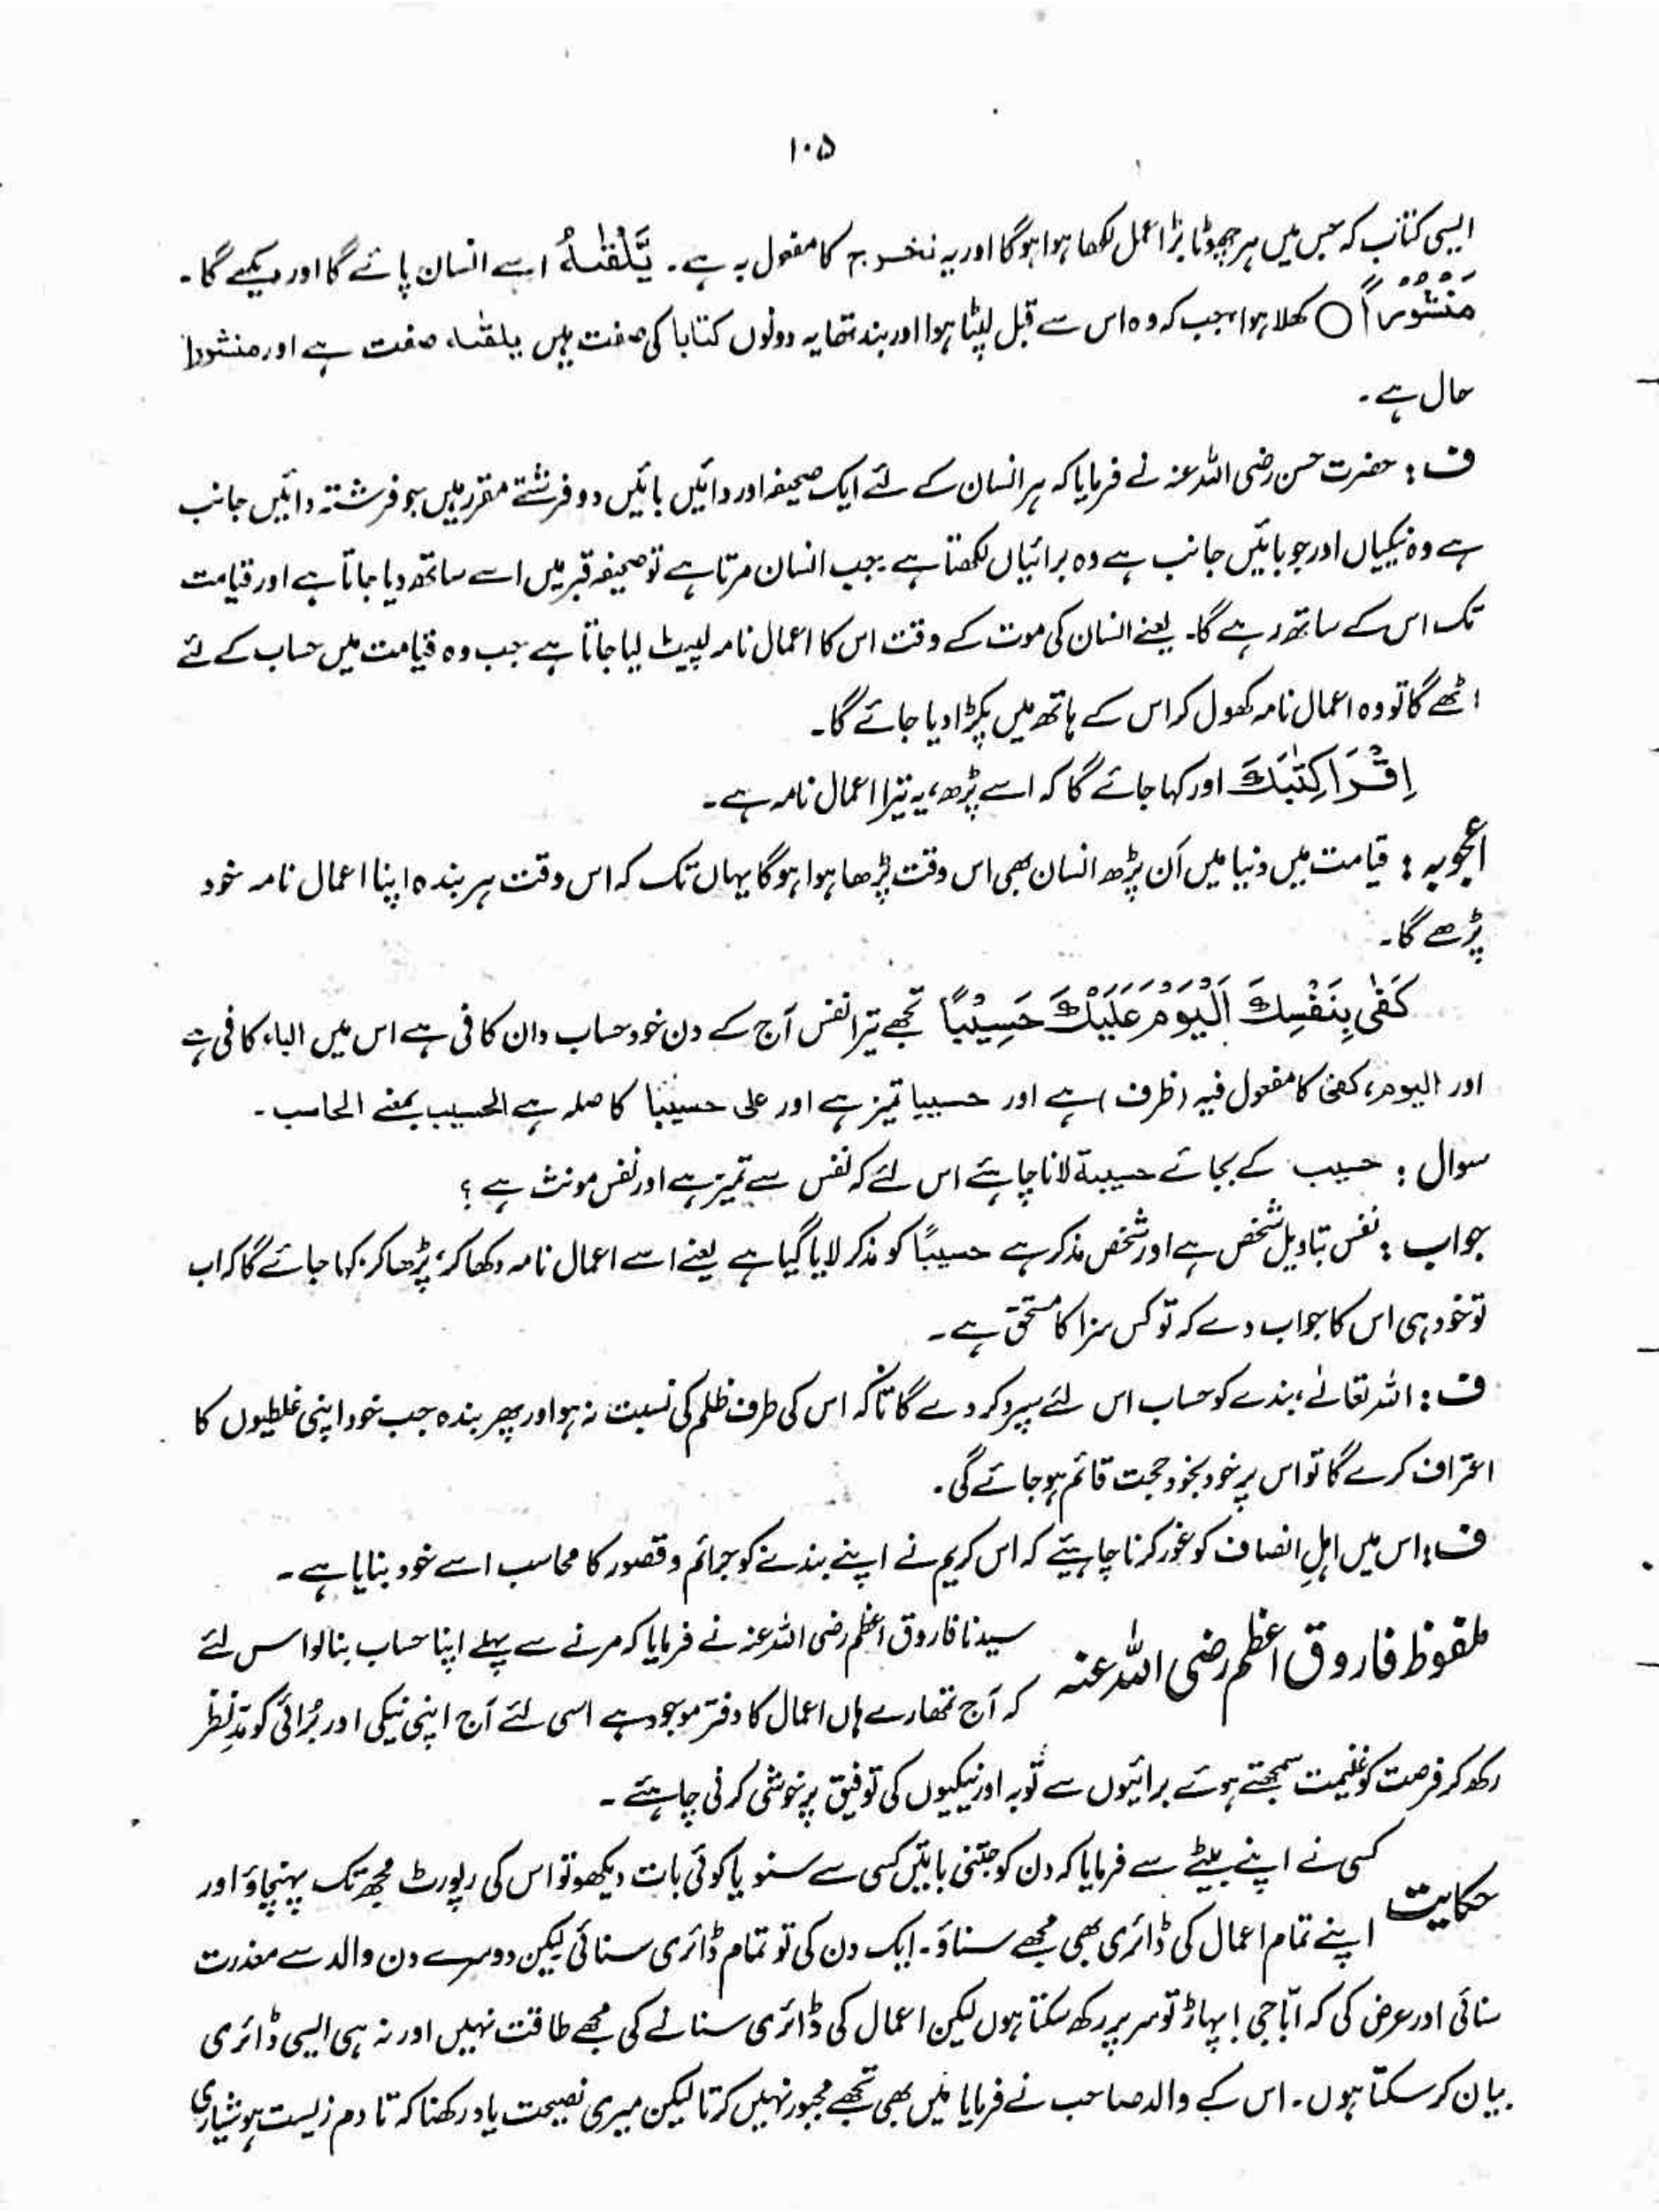 ۱۰۵
ایسی کتاب کہ جس میں ہر چھوٹا بڑا عمل لکھا ہوا ہوگا اور یہ نخرج کا مفعول بہ ہے۔ یَّلْقٰىهُ اسے انسان پائے گا اور دیکھے گا۔
مَنْشُوْرًا ○ کھلا ہوا، جب کہ وہ اس سے قبل لپٹا ہوا اور بند تھا یہ دونوں کتابا کی صفت ہیں یلقٰہ صفت ہے اور منشورا
حال ہے۔
ف : حضرت حسن رضی اللہ عنہ نے فرمایا کہ ہر انسان کے لئے ایک صحیفہ اور دائیں بائیں دو فرشتے مقرر ہیں جو فرشتہ دائیں جانب
ہے وہ نیکیاں اور جو بائیں جانب ہے وہ برائیاں لکھتا ہے جب انسان مرتا ہے تو صحیفہ قبر میں اسے ساتھ دیا جاتا ہے اور قیامت
تک اس کے ساتھ رہے گا۔ یعنے انسان کی موت کے وقت اس کا اعمال نامہ لپیٹ لیا جاتا ہے جب وہ قیامت میں حساب کے لئے
اٹھے گا تو وہ اعمال نامہ کھول کر اس کے ہاتھ میں پکڑا دیا جائے گا۔
اِقْرَاْ كِتٰبَكَ اور کہا جائے گا کہ اسے پڑھ، یہ تیرا اعمال نامہ ہے۔
اعجوبہ : قیامت میں دنیا میں اَن پڑھ انسان بھی اس وقت پڑھا ہوا ہوگا یہاں تک کہ اس وقت ہر بندہ اپنا اعمال نامہ خود
پڑھے گا۔
كَفٰى بِنَفْسِكَ الْيَوْمَ عَلَيْكَ حَسِيْبًا تجھے تیرا نفس آج کے دن خود حساب دان کافی ہے اس میں الباء کافی ہے
اور الیوم، کفیٰ کا مفعول فیہ (ظرف) ہے اور حسیبا تمیز ہے اور علی حسیبا کا صلہ ہے الحسیب بمعنے الحاسب۔
سوال : حسیب کے بجائے حسیبۃ لانا چاہئے اس لئے کہ نفس سے تمیز ہے اور نفس مونث ہے ؟
جواب : نفس بتاویل شخص ہے اور شخص مذکر ہے حسیبًا کو مذکر لایا گیا ہے یعنے اسے اعمال نامہ دکھا کر، پڑھا کر کہا جائے گا کہ اب
تو خود ہی اس کا جواب دے کہ تو کس سزا کا مستحق ہے۔
ف : اللہ تعالیٰ، بندے کو حساب اس لئے سپرد کر دے گا تاکہ اس کی طرف ظلم کی نسبت نہ ہو اور پھر بندہ جب خود اپنی غلطیوں کا
اعتراف کرے گا تو اس پر خود بخود حجت قائم ہو جائے گی۔
ف : اس میں اہلِ انصاف کو غور کرنا چاہیئے کہ اس کریم نے اپنے بندے کو جرائم و قصور کا محاسب اسے خود بنایا ہے۔
ملفوظ فاروق اعظم رضی اللہ عنہ سیدنا فاروق اعظم رضی اللہ عنہ نے فرمایا کہ مرنے سے پہلے اپنا حساب بنا لو اس لئے
کہ آج تمھارے ہاں اعمال کا دفتر موجود ہے اسی لئے آج اپنی نیکی اور بُرائی کو مدِّ نظر
رکھ کر فرصت کو غنیمت سمجھتے ہوئے برائیوں سے توبہ اور نیکیوں کی توفیق پر خوشی کرنی چاہئے۔
حکایت کسی نے اپنے بیٹے سے فرمایا کہ دن کو جتنی باتیں کسی سے سنو یا کوئی بات دیکھو تو اس کی رپورٹ مجھ تک پہنچاؤ اور
اپنے تمام اعمال کی ڈائری بھی مجھے سناؤ۔ ایک دن کی تو تمام ڈائری سنائی لیکن دوسرے دن والد سے معذرت
سنائی اور عرض کی کہ ابّا جی! پہاڑ تو سر پر رکھ سکتا ہوں لیکن اعمال کی ڈائری سنانے کی مجھے طاقت نہیں اور نہ ہی ایسی ڈائری
بیان کر سکتا ہوں۔ اس کے والد صاحب نے فرمایا میں بھی تجھے مجبور نہیں کرتا لیکن میری نصیحت یاد رکھنا کہ تا دم زیست ہوشیاری